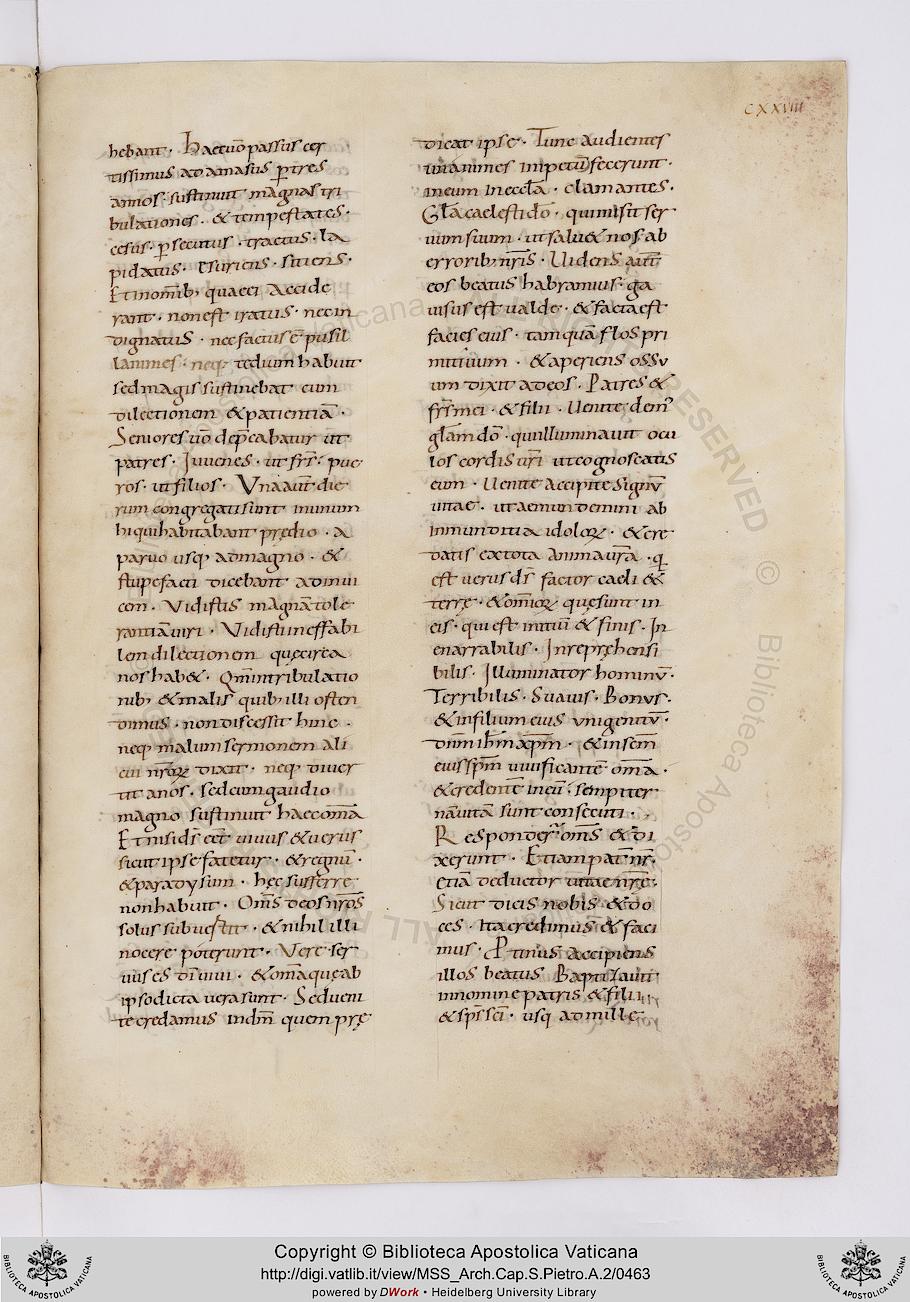 CXXVIII
hebant · Haec uō passus cer
tissimus ad amasus ꝑ tres
annos · sustinuit magnas tri
bulationes · & tempestates ·
cesus · ꝑsecutus · tractus · la
pidatus · esuriens · sitiens ·
Et in omīb; quae ei accide
rant · non est iratus · nec in
dignatus · nec factus ē pusil
lanimes · neq; tedium habuit
sed magis sustinebat eum
dilectionem & patientiā ·
Seniores uō dep̄cabatur ut
patres · Iuuenes · ut fr̄s · pue
ros · ut filios · Una aut̄ die
rum congregati sunt in unum
hi qui habitabant prędio · a
paruo usq; ad magno · &
stupefacti dicebant ad inui
cem · Vidistis magnā tole
rantiā uiri · Vidisti ineffabi
lem dilectionem quę circa
nos hab& · Qm̄ in tribulatio
nib; & malis quib; illi osten
dimus · non discessit hinc ·
neq; malum sermonem ali
cui nr̄oꝝ dixit · neq; diuer
tit a nos · sed cum gaudio
magno sustinuit haec om̄a
Et nisi d̄s eēt uiuus & uerus
sicut ipse fatetur · & regnū ·
& paradysum · hęc sufferre
non habuit · Om̄s deos nr̄os
solus subuertit · & nihil illi
nocere poterunt · Vere ser
uus es d̄i uiui · & om̄a que ab
ipso dicta uera sunt · Sed ueni
te credamus in dm̄ quem prę
dicat ipse · Tunc audientes
unanimes impetū fecerunt ·
in eum in eccla · clamantes ·
Gl̄a caelesti dō · qui misit ser
uum suum · ut salu& nos ab
errorib; nr̄is · Uidens aut̄
eos beatus habramius · ga
uisus est ualde · & facta est
facies eius · tamquā flos pri
mitiuum · & aperiens os su
um dixit ad eos · Patres &
fr̄s mei · & filii · Uenite dem⁹
gl̄am dō · qui illuminauit ocu
los cordis ur̄i ut cognoscatis
eum · Uenite accipite signū
uitae · ut aemundemini ab
inmunditia idoloꝝ · & cre
datis ex tota anima ur̄a · q̄
est uerus d̄s factor caeli &
terrę · & om̄ioꝝ quę sunt in
eis · qui est initiū & finis · In
enarrabilis · Inrepręhensi
bilis · Illuminator hominū ·
Terribilis · Suauis · Bonus ·
& in filium eius unigenitū ·
dnm̄ ihm̄ xpm̄ · & in scm̄
eius spm̄ uiuificante om̄a ·
& credentē in eū · sempiter
nā uitā sunt consecuti ·
Responder̄ om̄s & di
xerunt · Etiam pat̄ nr̄ ·
etiā deductor uitae nr̄e ·
Sicut dicis nobis & do
ces · ita credimus & faci
mus · Ptinus accipiens
illos beatus Baptizauit
in nomine patris & filii
& sp̄s sc̄i · usq; ad mille
Copyright © Biblioteca Apostolica Vaticana
http://digi.vatlib.it/view/MSS_Arch.Cap.S.Pietro.A.2/0463
powered by DWork • Heidelberg University Library